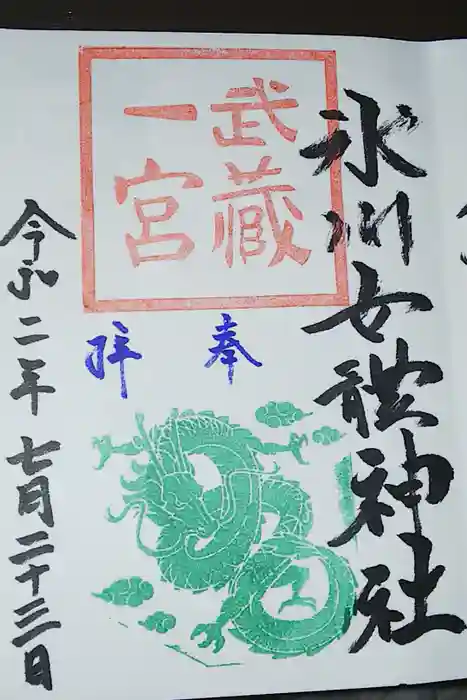 氷川女體神社
武蔵
一宮
奉
拝
令和二年七月二十三日